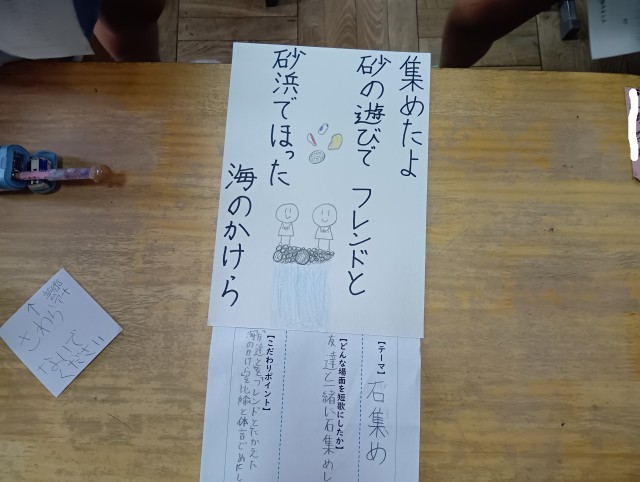 集めたよ
砂の遊びで フレンドと
砂浜でほった
海のかけら
【テーマ】
石集め
【どんな場面を短歌にしたか】
友達と一緒に石集めし
【こだわりポイント】
友達を、フレンドとたかえた
海のかけらを比喩と体言じめだし
さわら
ないで
ください